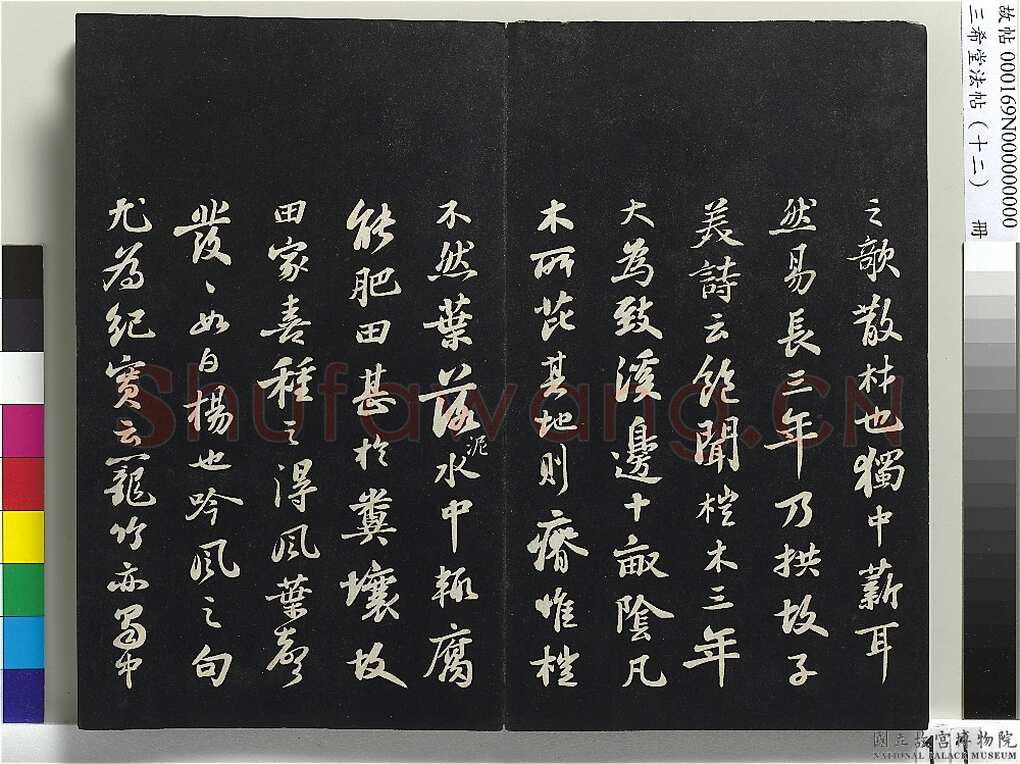 之欹散材也獨中薪耳
然易長三年乃拱故子
美詩云飽聞榿木三年
大為致溪邊十畝陰凡
木所芘其地則瘠惟榿
不然葉落泥水中輒腐
能肥田甚於糞壤故
田家喜種之得風葉聲
發〻如白楊也吟風之句
尤為紀實云籠竹亦蜀中
故帖000169N000000000
三希堂法帖(十二) 冊
Shufawang.CN
國立故宮博物院
NATIONAL PALACE MUSEUM